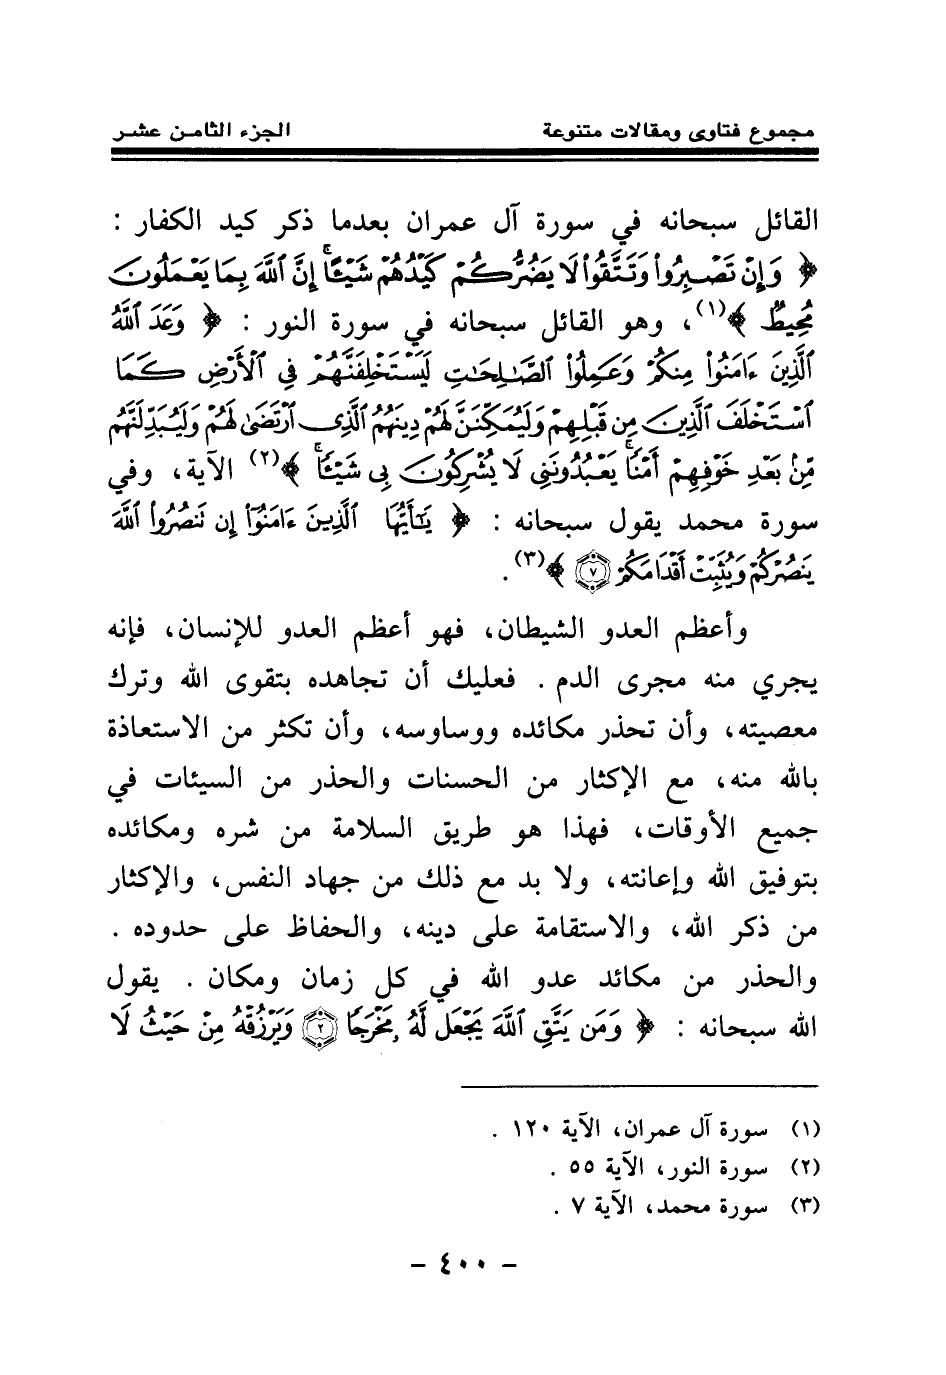 مجموع فتاوى ومقالات متنوعة الجزء الثامن عشر
القائل سبحانه في سورة آل عمران بعدما ذكر كيد الكفار :
﴿ وَإِنْ تَصْبِرُوا۟ وَتَتَّقُوا۟ لَا يَضُرُّكُمْ كَيْدُهُمْ شَيْـًٔا ۗ إِنَّ ٱللَّهَ بِمَا يَعْمَلُونَ
مُحِيطٌ ﴾(١)، وهو القائل سبحانه في سورة النور : ﴿ وَعَدَ ٱللَّهُ
ٱلَّذِينَ ءَامَنُوا۟ مِنكُمْ وَعَمِلُوا۟ ٱلصَّـٰلِحَـٰتِ لَيَسْتَخْلِفَنَّهُمْ فِى ٱلْأَرْضِ كَمَا
ٱسْتَخْلَفَ ٱلَّذِينَ مِن قَبْلِهِمْ وَلَيُمَكِّنَنَّ لَهُمْ دِينَهُمُ ٱلَّذِى ٱرْتَضَىٰ لَهُمْ وَلَيُبَدِّلَنَّهُم
مِّنۢ بَعْدِ خَوْفِهِمْ أَمْنًا ۚ يَعْبُدُونَنِى لَا يُشْرِكُونَ بِى شَيْـًٔا ۚ ﴾(٢) الآية، وفي
سورة محمد يقول سبحانه : ﴿ يَـٰٓأَيُّهَا ٱلَّذِينَ ءَامَنُوٓا۟ إِن تَنصُرُوا۟ ٱللَّهَ
يَنصُرْكُمْ وَيُثَبِّتْ أَقْدَامَكُمْ ٧ ﴾(٣).
وأعظم العدو الشيطان، فهو أعظم العدو للإنسان، فإنه
يجري منه مجرى الدم . فعليك أن تجاهده بتقوى الله وترك
معصيته، وأن تحذر مكائده ووساوسه، وأن تكثر من الاستعاذة
بالله منه، مع الإكثار من الحسنات والحذر من السيئات في
جميع الأوقات، فهذا هو طريق السلامة من شره ومكائده
بتوفيق الله وإعانته، ولا بد مع ذلك من جهاد النفس، والإكثار
من ذكر الله، والاستقامة على دينه، والحفاظ على حدوده .
والحذر من مكائد عدو الله في كل زمان ومكان . يقول
الله سبحانه : ﴿ وَمَن يَتَّقِ ٱللَّهَ يَجْعَل لَّهُۥ مَخْرَجًا ٢ وَيَرْزُقْهُ مِنْ حَيْثُ لَا
(١) سورة آل عمران، الآية ١٢٠ .
(٢) سورة النور، الآية ٥٥ .
(٣) سورة محمد، الآية ٧ .
- ٤٠٠ -